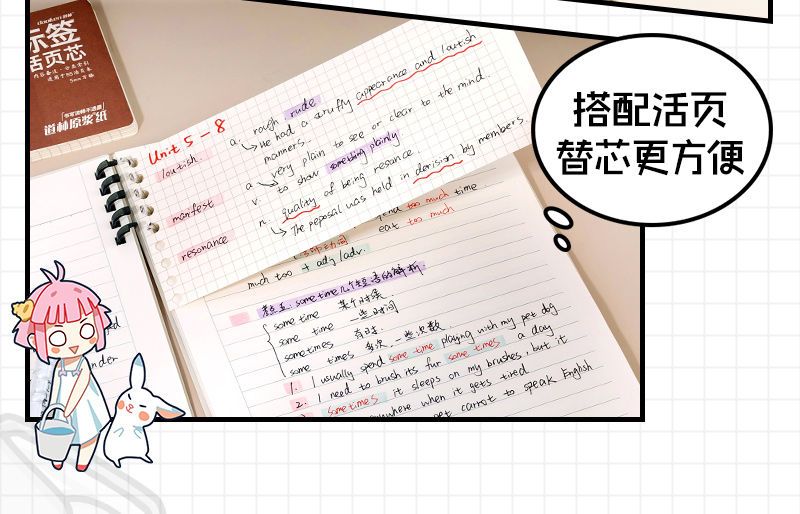 标签
活页芯
道林原浆纸
搭配活页
替芯更方便
Unit 5 - 8
loutish
a. rough rude
He had a scruffy appearance and loutish
manners.
manifest
a. very plain to see or clear to the mind.
v. to show something plainly
resonance
n. quality of being resonance.
The peposal was held in derision by members.
too much time
eat too much
much too + adj/adv.
考点五: some time 几个短语的解析
some time 某个时候
some time 一些时间
sometimes 有时
some times 多次, 一些次数
1. I usually spend some time playing with my pet dog
2. I need to brush its fur some times a day
sometimes it sleeps on my brushes, but it
when it gets tired
carrot to speak English